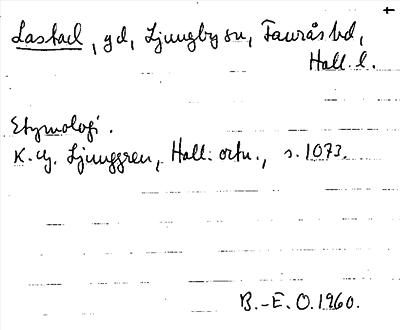 +
Lastad, gd, Ljungby sn, Faurås hd,
Hall. l.
Etymologi.
K. G. Ljunggren, Hall: ortn., s. 1073.
B.-E. O. 1960.